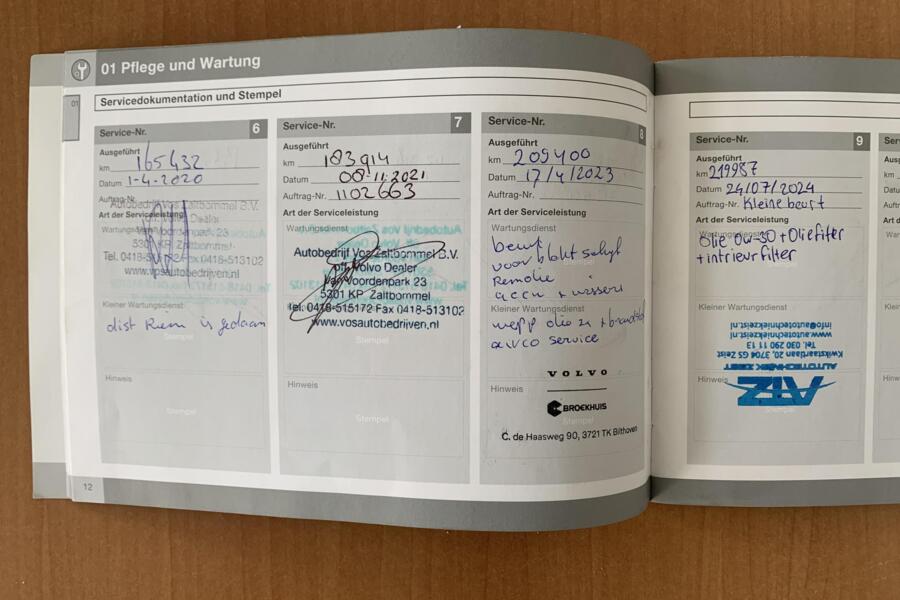 01 Pflege und Wartung
01
Servicedokumentation und Stempel
Service-Nr. 6
Ausgeführt
km 165432
Datum 1-4-2020
Auftrag-Nr.
Autobedrijf Vos Zaltbommel B.V.
off. Volvo Dealer
Art der Serviceleistung
Wartungsdienst
Van Voordenpark 23
5301 KP Zaltbommel
Tel. 0418-515172 Fax 0418-513102
www.vosautobedrijven.nl
Kleiner Wartungsdienst
dist Riem is gedaan
Stempel
Hinweis
Stempel
12
Service-Nr. 7
Ausgeführt
km 183914
Datum 08-11-2021
Auftrag-Nr. 1102663
Art der Serviceleistung
Wartungsdienst
Autobedrijf Vos Zaltbommel B.V.
off. Volvo Dealer
Van Voordenpark 23
5301 KP Zaltbommel
Tel. 0418-515172 Fax 0418-513102
www.vosautobedrijven.nl
Kleiner Wartungsdienst
Stempel
Hinweis
Stempel
Service-Nr. 8
Ausgeführt
km 209400
Datum 17/4/2023
Auftrag-Nr.
Art der Serviceleistung
Wartungsdienst
beurt
voor
Remolie
accu + wissers
Kleiner Wartungsdienst
olie
airco service
VOLVO
Hinweis
BROEKHUIS
Stempel
C. de Haasweg 90, 3721 TK Bilthoven
Service-Nr. 9
Ausgeführt
km 219987
Datum 24/07/2024
Auftrag-Nr. Kleine beurt
Art der Serviceleistung
Wartungsdienst
Olie 0w-30 + Oliefilter
+ intrieurfilter
Stempel
Kleiner Wartungsdienst
info@autotechniekzeist.nl
www.autotechniekzeist.nl
Tel. 030 290 11 13
Kwikstaartlaan 20, 3704 GS Zeist
AUTOTECHNIEK ZEIST
ATZ
Hinweis
Stempel